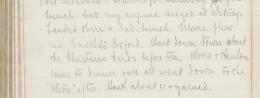 lunch but my engine seized at Witney.
Landed there & had lunch. Moore flew
me back to Oxford. Went down town about
the Christmas cards before tea. Moore &
came to dinner and all went down to the
after. Back about 10 & yarned.